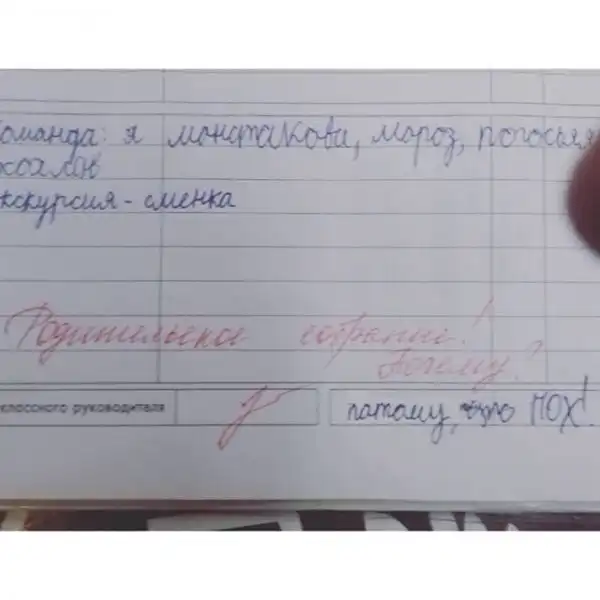 оманда: я монстакова, мороз, погосья
кохлов
кскурсия - сменка
Родительское собрание!
Почему?
классного руководителя
потому, что ПОХ!